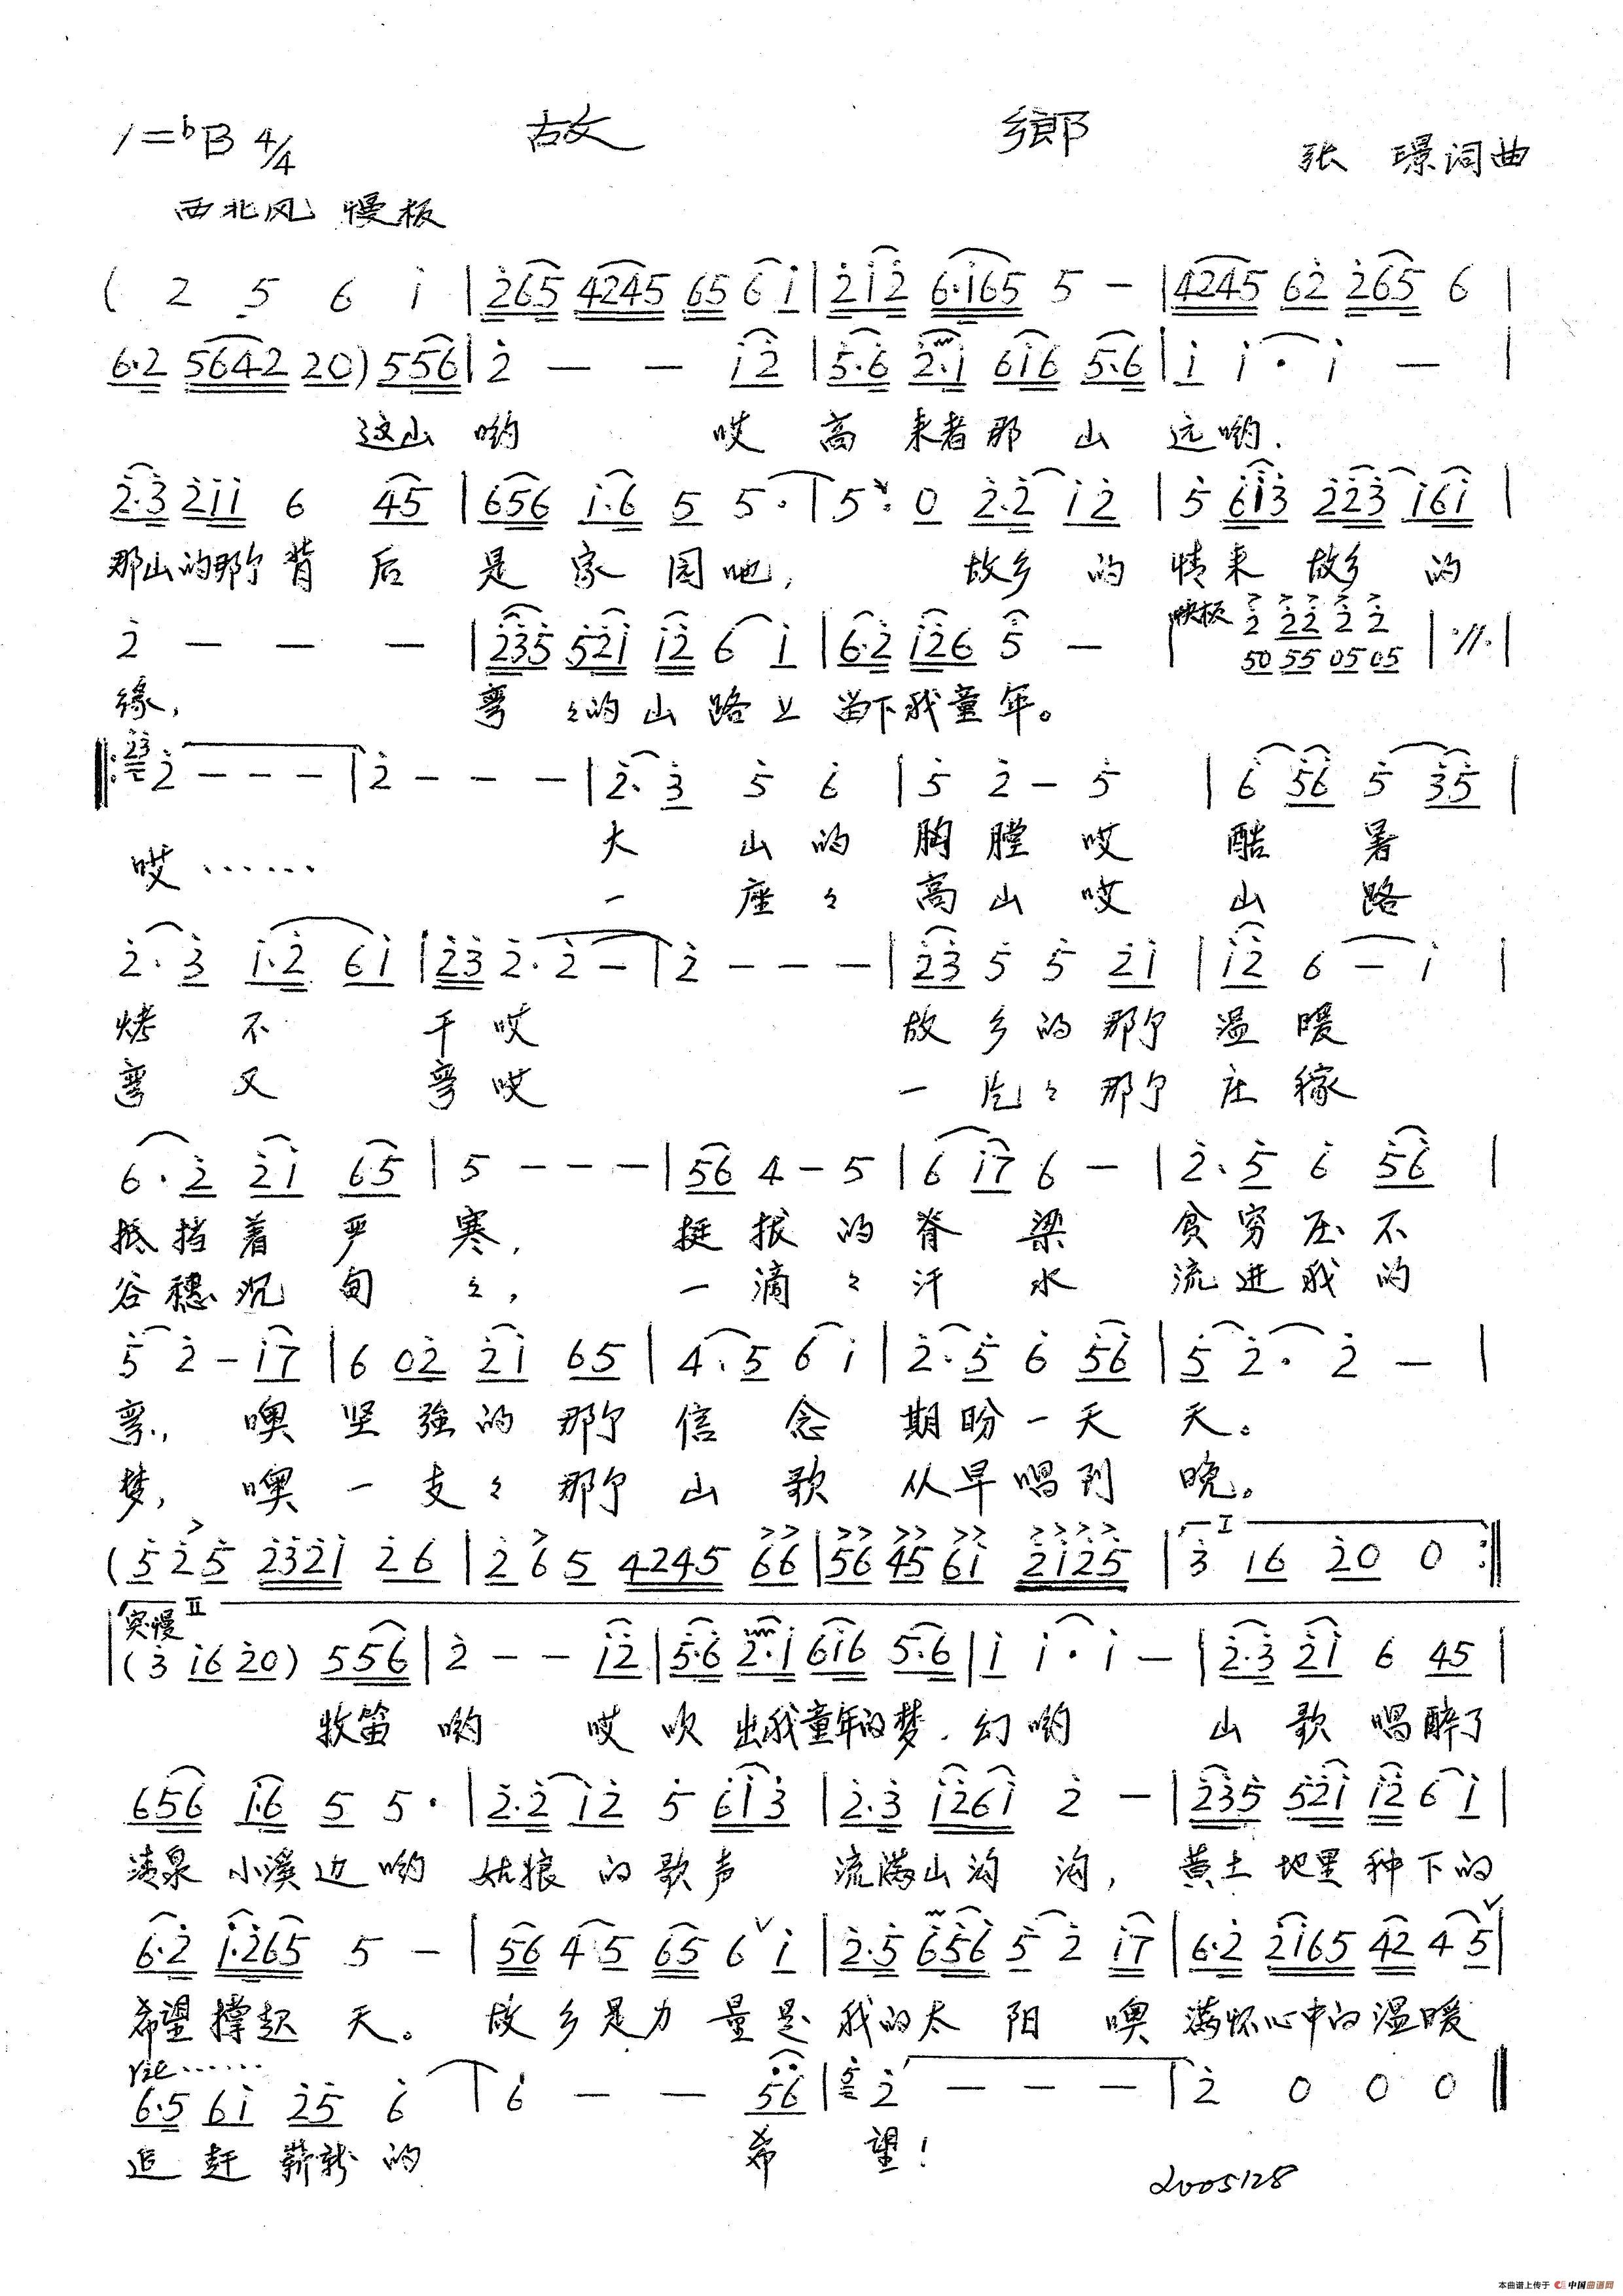 故 鄉
1=♭B 4/4
张 璟词曲
西北风 慢板
( 2 5 6 i | 265 4245 65 6 i | 2i2 6·i65 5 — | 4245 62 265 6 |
6·2 5642 20) 556 | 2 — — i2 | 5·6 2·i 6i6 5·6 | i i · i — |
这山 哟 哎 高 来者那 山 远哟.
2·3 2ii 6 45 | 656 i·6 5 5· | 5· 0 2·2 i2 | 5 6i3 223 i6i |
那山的那个背 后 是 家 园吔, 故乡 的 情来 故乡 的
2 — — — | 235 52i i2 6 i | 6·2 i26 5 — | 快板 2 22 2 2 | ·//· |
50 55 05 05
缘, 弯 々的 山 路 上 留下我童 年。
‖: 23 2 — — — | 2 — — — | 2· 3 5 6 | 5 2 — 5 | 6 56 5 35 |
哎 …… 大 山 的 胸 膛 哎 酷 暑
一 座 々 高 山 哎 山 路
2· 3 i·2 6i | 23 2· 2 — | 2 — — — | 23 5 5 2i | i2 6 — i |
烤 不 干 哎 故 乡 的 那个 温 暖
弯 又 弯 哎 一 片 々 那个 庄 稼
6· 2 2i 65 | 5 — — — | 56 4 — 5 | 6 i7 6 — | 2· 5 6 56 |
抵 挡 着 严 寒, 挺 拔 的 脊 梁 贫 穷 压 不
谷 穗 沉 甸 々, 一 滴 々 汗 水 流 进 我 的
5 2 — i7 | 6 02 2i 65 | 4· 5 6 i | 2· 5 6 56 | 5 2· 2 — |
弯, 噢 坚 強 的 那个 信 念 期 盼 一 天 天。
梦, 噢 一 支 々 那个 山 歌 从 早 唱 到 晚。
( 5 2 5 232i 26 | 2 6 5 4245 66 | 56 45 6i 2i25 | I 3 i6 20 0 :‖
突慢 II
| (3 i6 20) 556 | 2 — — i2 | 5·6 2·i 6i6 5·6 | i i · i — | 2·3 2i 6 45 |
牧笛 哟 哎 吹 出我童年的梦. 幻 哟 山 歌 唱 醉了
656 i·6 5 5· | 2·2 i2 5 6i3 | 2·3 i26i 2 — | 235 52i i2 6 i |
清泉 小溪 边 哟 姑娘 的 歌 声 流满山 沟 沟, 黄土 地里 种 下 的
6·2 i·265 5 — | 56 4 5 65 6 ∨ i | 2·5 656 5 2 i7 | 6·2 2i65 42 4 5 ∨ |
希望 撑起 天。 故 乡 是 力 量 是 我 的 太 阳 噢 满怀心中的温暖
rit……
6·5 6i 25 6 | 6 — — 56 | 5 2 — — — | 2 0 0 0 ‖
追 赶 崭新 的 希 望!
2005128
本曲谱上传于 中国曲谱网